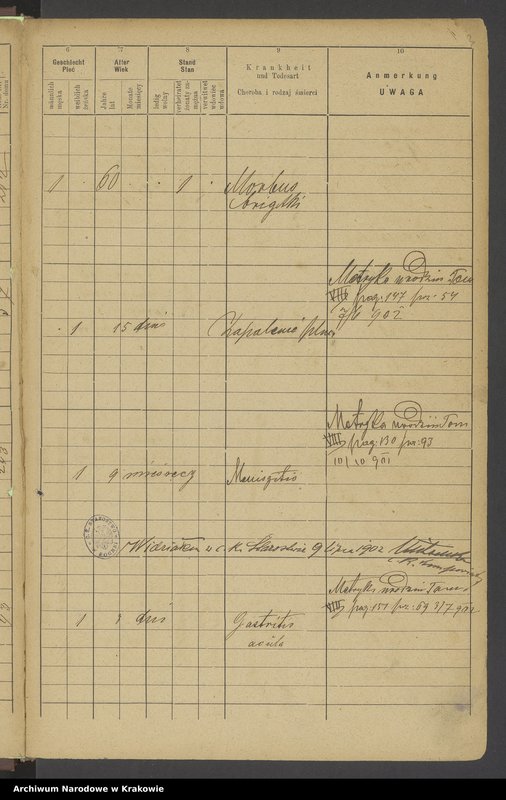 6 7 8 9 10
Geschlecht
Płeć
Alter
Wiek
Stand
Stan
Krankheit
und Todesart
Choroba i rodzaj śmierci
Anmerkung
UWAGA
männlich
męska
weiblich
żeńska
Jahre
lat
Monate
miesięcy
ledig
wolny
verheiratet
żonaty zamężna
verwitwet
wdowiec
wdowa
1 60 1 Morbus
brigthi
Metryka urodzin Tom
VIII pag. 147 poz. 54
7/6 902
1 15 dni Zapalenie płuc
Metryka urodzin Tom
VIII pag. 130 poz. 93
10/10 901
1 9 miesięcy Meningitis
Widziałem w c. k. Starostwie 9 lipca 1902
Metryka urodzin Tom
VIII pag. 151 poz. 69 3/7 902
1 3 dni Gastritis
acuta
Archiwum Narodowe w Krakowie